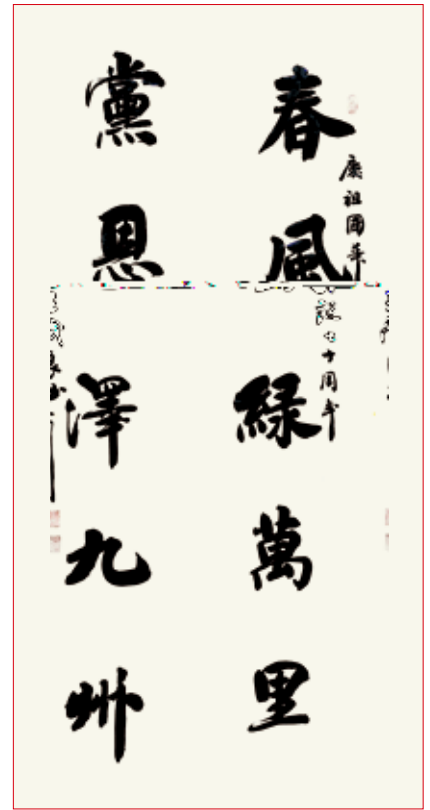 春風緑萬里
慶祖國華誕十周年
黨恩澤九州